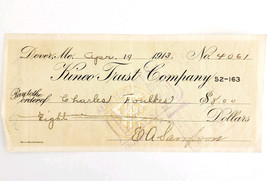 Dover, Me. Apr. 19 1913. No. 4061
Kineo Trust Company 52-163
Pay to the order of Charles Foulkes $8.00
Eight Dollars
E A Sampson